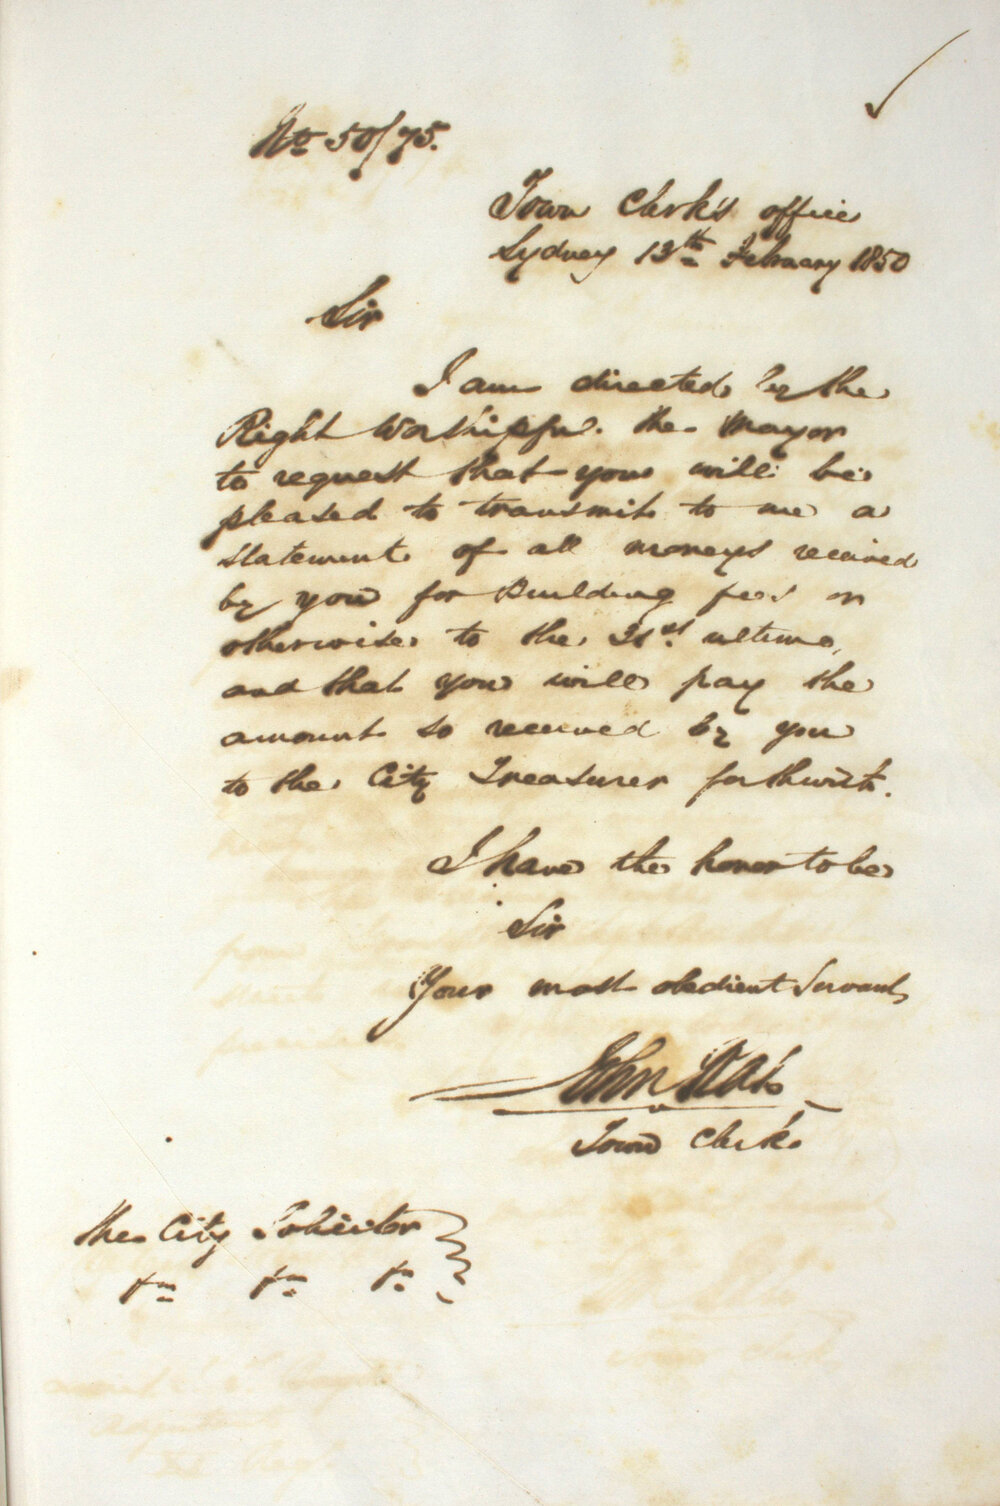 No 50/75.
Town Clerk's office
Sydney 13th February 1850
Sir
I am directed by the
Right Worshipfu. the Mayor
to request that you will be
pleased to transmit to me a
statement of all moneys received
by you for Building fees or
otherwise to the 31st ultimo,
and that you will pay the
amount so received by you
to the City Treasurer forthwith.
I have the honor to be
Sir
Your most obedient Servant
John Rae
Town Clerk
The City Solicitor